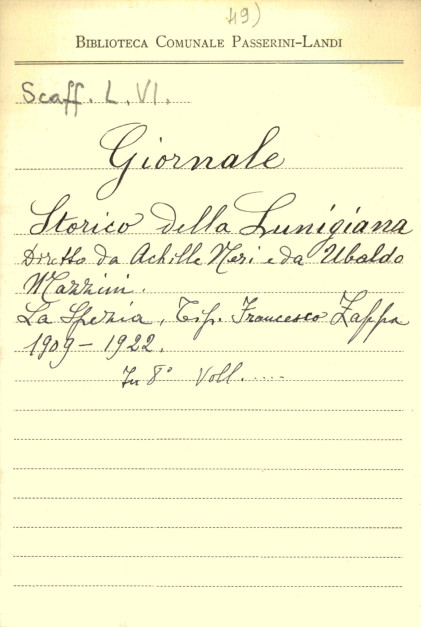 49)
BIBLIOTECA COMUNALE PASSERINI-LANDI
Scaff. L. VI.
Giornale
Storico della Lunigiana
Diretto da Achille Neri e da Ubaldo
Mazzini.
La Spezia, Tip. Francesco Zappa
1909-1922.
In 8° Voll.....